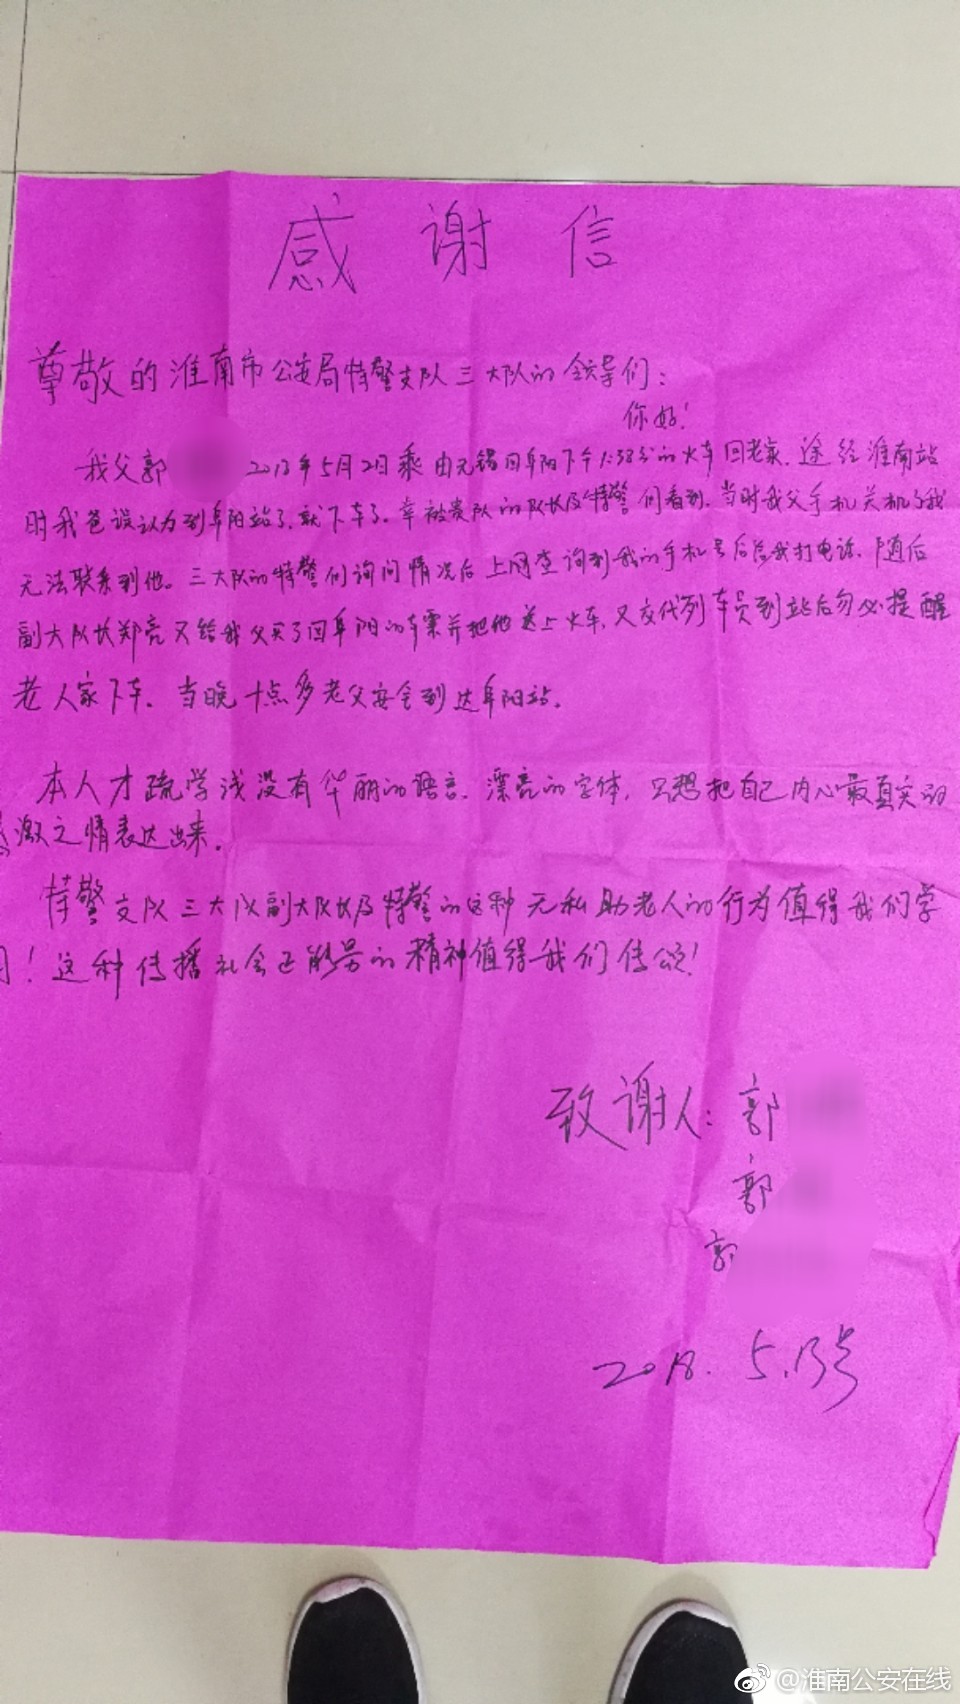 感谢信
尊敬的淮南市公安局特警支队三大队的领导们：
你好！
我父郭 2018年5月2日乘由无锡回阜阳下午1:38分的火车回老家，途经淮南站
时我爸误认为到阜阳站了，就下车了。幸被贵队的队长及特警们看到，当时我父手机关机了我
无法联系到他。三大队的特警们询问情况后上网查询到我的手机号后给我打电话，随后
副大队长郑亮又给我父买了回阜阳的车票并把他送上火车，又交代列车员到站后务必提醒
老人家下车。当晚十点多老父安全到达阜阳站。
本人才疏学浅没有华丽的语言、漂亮的字体，只想把自己内心最真实的
感激之情表达出来。
特警支队三大队副大队长及特警的这种无私助老人的行为值得我们学
习！这种传播社会正能量的精神值得我们传颂！
致谢人：郭
郭
郭
2018.5.13号
@淮南公安在线